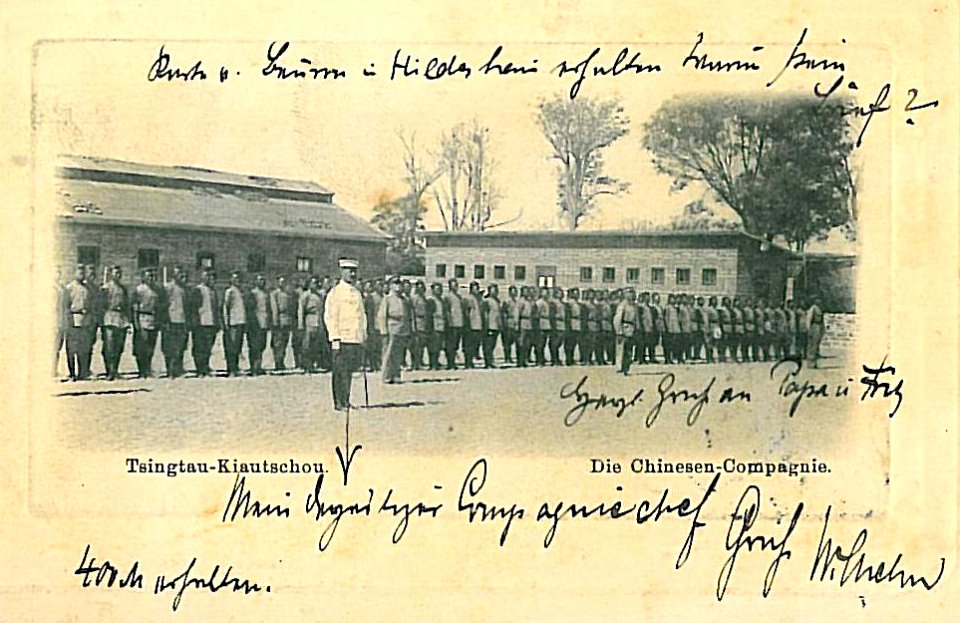 Karte v. Beuron u Hildesheim erhalten Warum kein
Brief?
Herzl. Gruß an Papa u
Tsingtau-Kiautschou.
Die Chinesen-Compagnie.
Mein derzeitiger Compagniechef
Gruß Wilhelm
400 M erhalten.